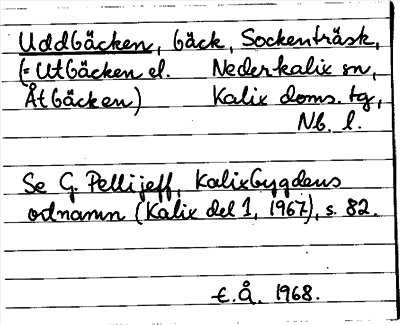 Uddbäcken, bäck, Sockenträsk,
(= Utbäcken el. Nederkalix sn,
Åtbäcken) Kalix doms. tg,
Nb. l.
Se G. Pellijeff, Kalixbygdens
ortnamn (Kalix del 1, 1967), s. 82.
E.Å. 1968.